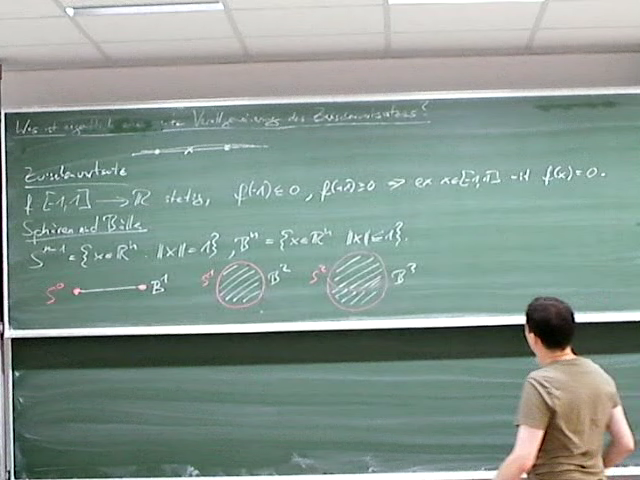 Was ist eigentlich eine gute Verallgemeinerung des Zwischenwertsatzes?
Zwischenwertsatz
f: [-1,1] → ℝ stetig, f(-1) ≤ 0, f(+1) ≥ 0 ⇒ ex x∈[-1,1] mit f(x) = 0.
Sphären und Bälle
Sⁿ⁻¹ = {x∈ℝⁿ: ||x|| = 1}, Bⁿ = {x∈ℝⁿ: ||x|| ≤ 1}.
S⁰ B¹ S¹ B² S² B³